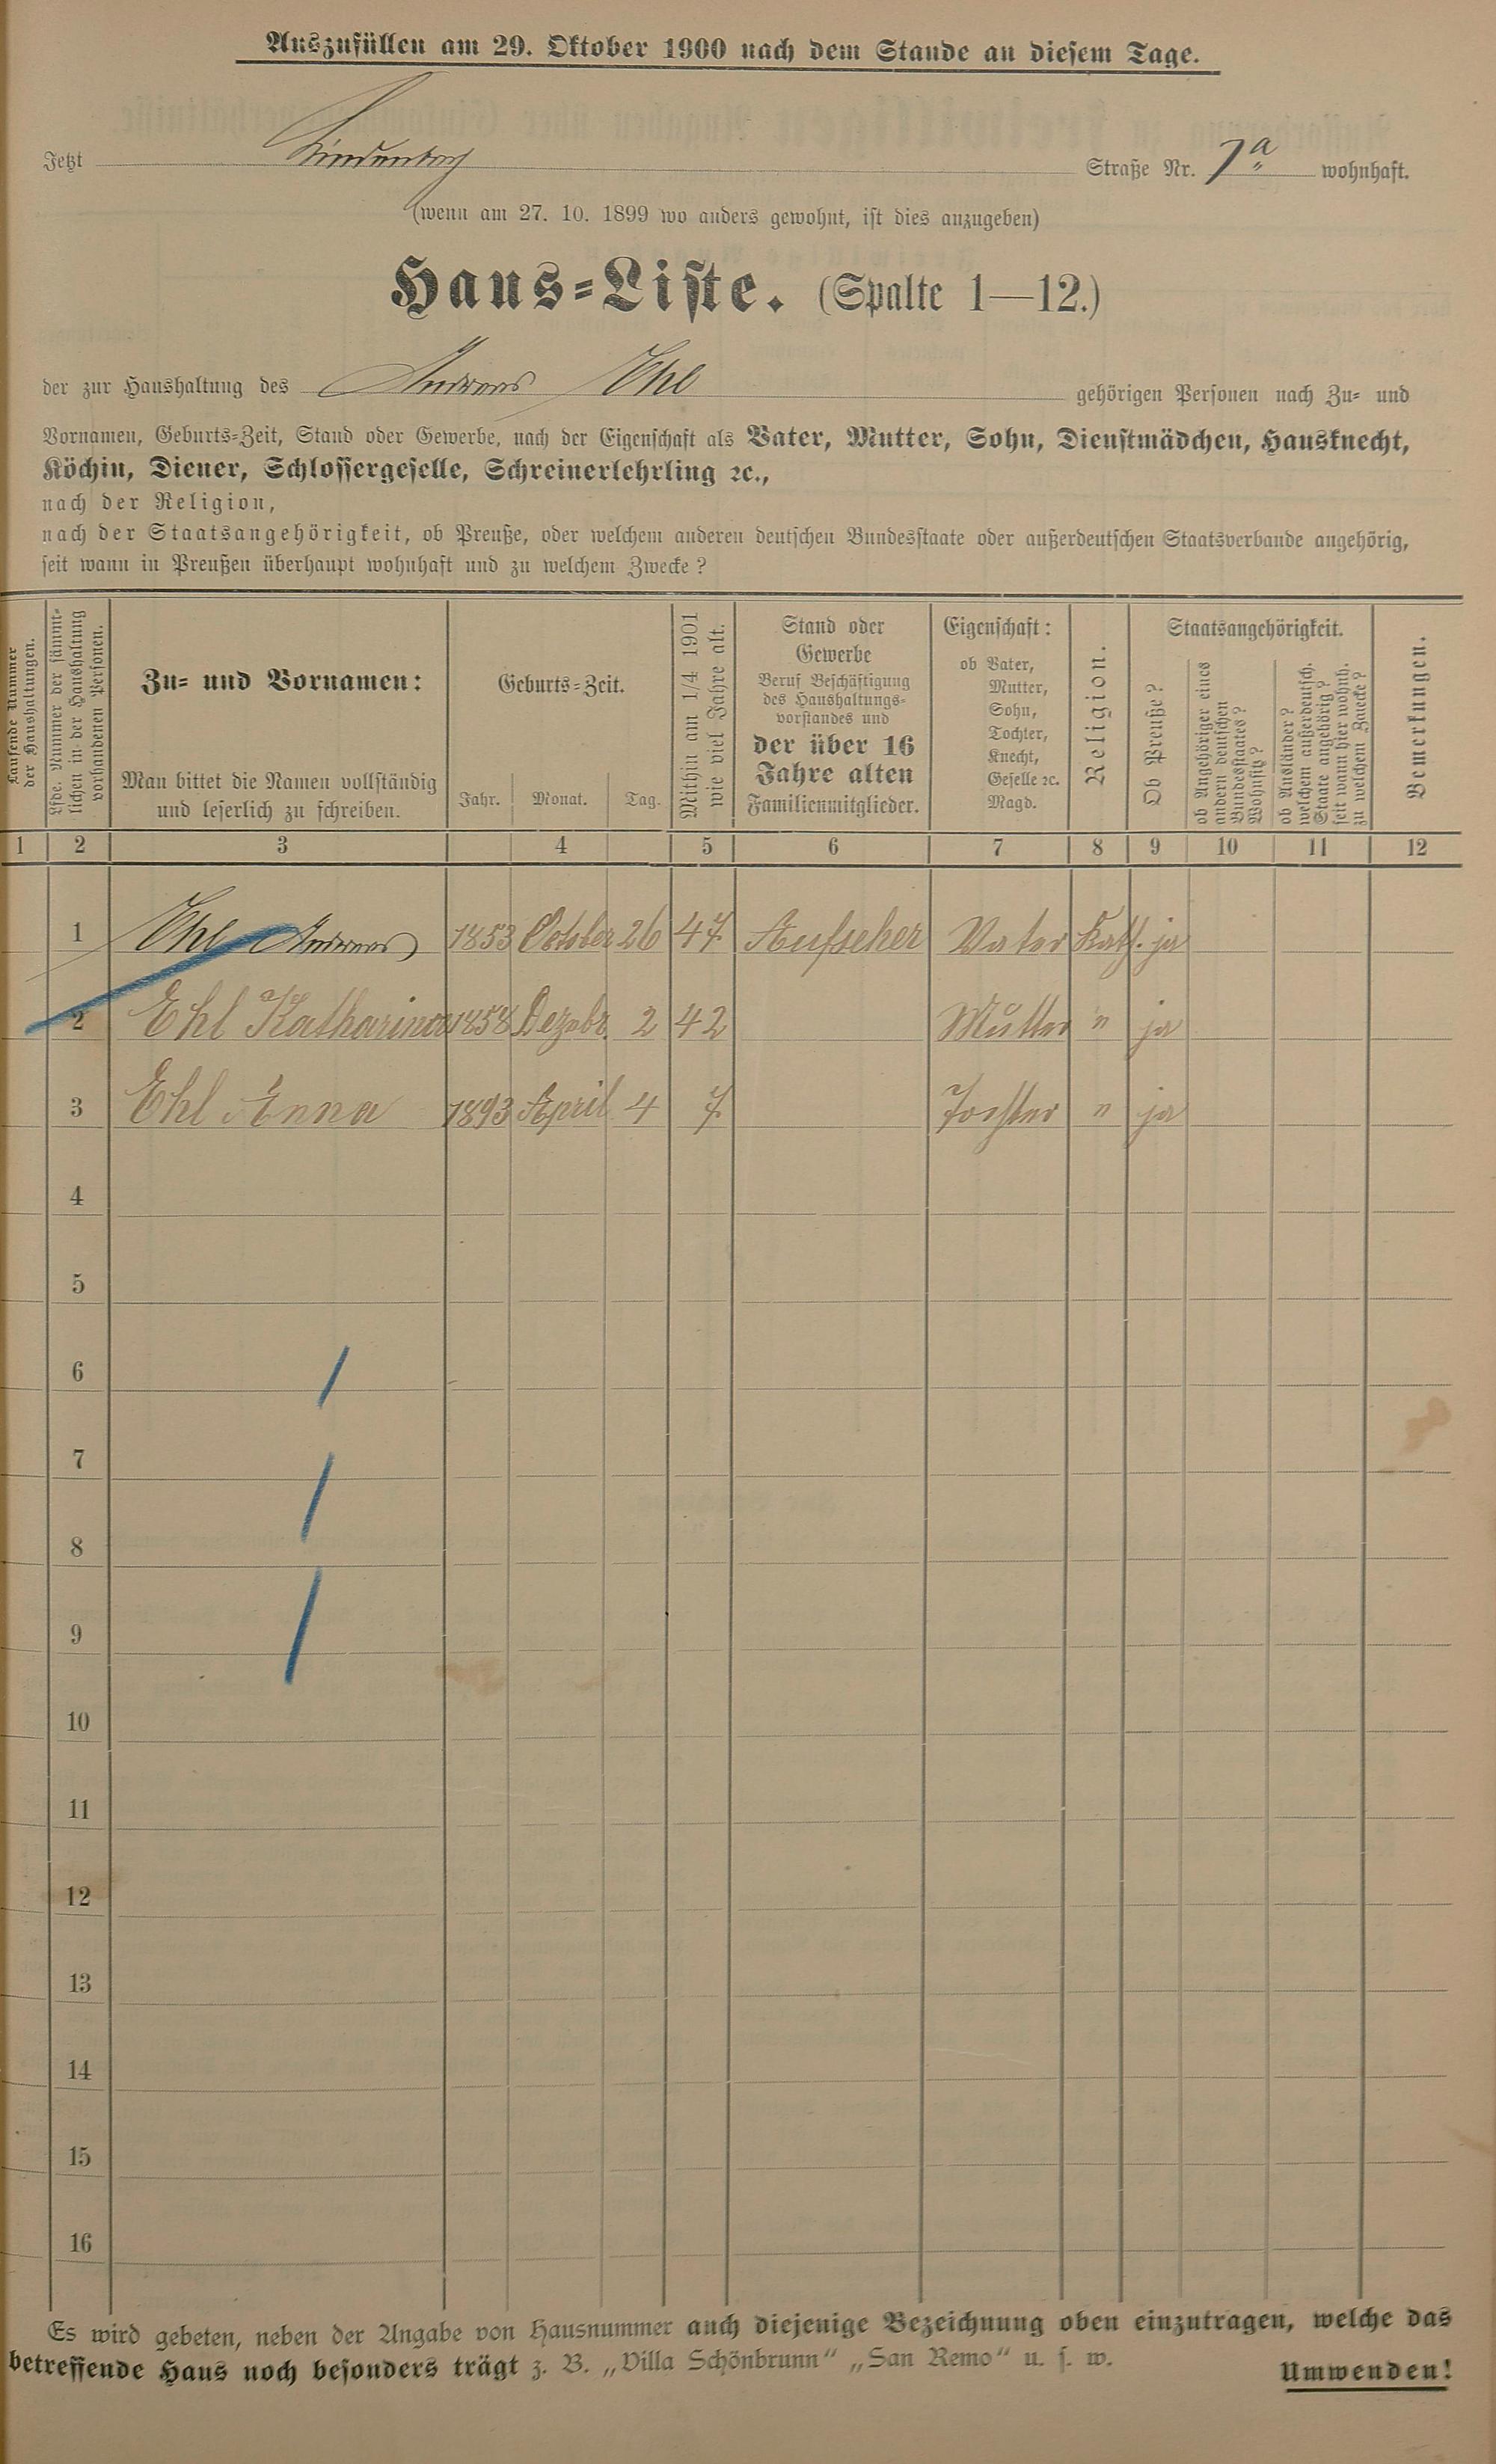 Auszufüllen am 29. Oktober 1900 nach dem Stande an diesem Tage.
Jetzt Lindenbach Straße Nr. 7a wohnhaft.
(wenn am 27. 10. 1899 wo anders gewohnt, ist dies anzugeben)
Haus-Liste. (Spalte 1—12.)
der zur Haushaltung des Andreas Ehl gehörigen Personen nach Zu- und
Vornamen, Geburts-Zeit, Stand oder Gewerbe, nach der Eigenschaft als Vater, Mutter, Sohn, Dienstmädchen, Hausknecht,
Köchin, Diener, Schlossergeselle, Schreinerlehrling ꝛc.,
nach der Religion,
nach der Staatsangehörigkeit, ob Preuße, oder welchem anderen deutschen Bundesstaate oder außerdeutschen Staatsverbande angehörig,
seit wann in Preußen überhaupt wohnhaft und zu welchem Zwecke?
Laufende Nummer
der Haushaltungen.
Lfde. Nummer der sämmt-
lichen in der Haushaltung
vorhandenen Personen.
Zu- und Vornamen:
Man bittet die Namen vollständig
und leserlich zu schreiben.
Geburts-Zeit.
Jahr. Monat. Tag.
Mithin am 1/4 1901
wie viel Jahre alt.
Stand oder
Gewerbe
Beruf Beschäftigung
des Haushaltungs-
vorstandes und
der über 16
Jahre alten
Familienmitglieder.
Eigenschaft:
ob Vater,
Mutter,
Sohn,
Tochter,
Knecht,
Geselle ꝛc.
Magd.
Religion.
Staatsangehörigkeit.
Ob Preuße?
ob Angehöriger eines
andern deutschen
Bundesstaates?
Wohnsitz?
ob Ausländer?
welchem außerdeutsch.
Staate angehörig?
seit wann hier wohnh.
zu welchem Zwecke?
Bemerkungen.
1 2 3 4 5 6 7 8 9 10 11 12
1 Ehl Andreas 1853 October 26 47 Aufseher Vater Kath. ja
2 Ehl Katharina 1858 Dezebr. 2 42 Mutter " ja
3 Ehl Anna 1893 April 4 7 Tochter " ja
4
5
6
7
8
9
10
11
12
13
14
15
16
Es wird gebeten, neben der Angabe von Hausnummer auch diejenige Bezeichnung oben einzutragen, welche das
betreffende Haus noch besonders trägt z. B. „Villa Schönbrunn“ „San Remo“ u. s. w.
Umwenden!